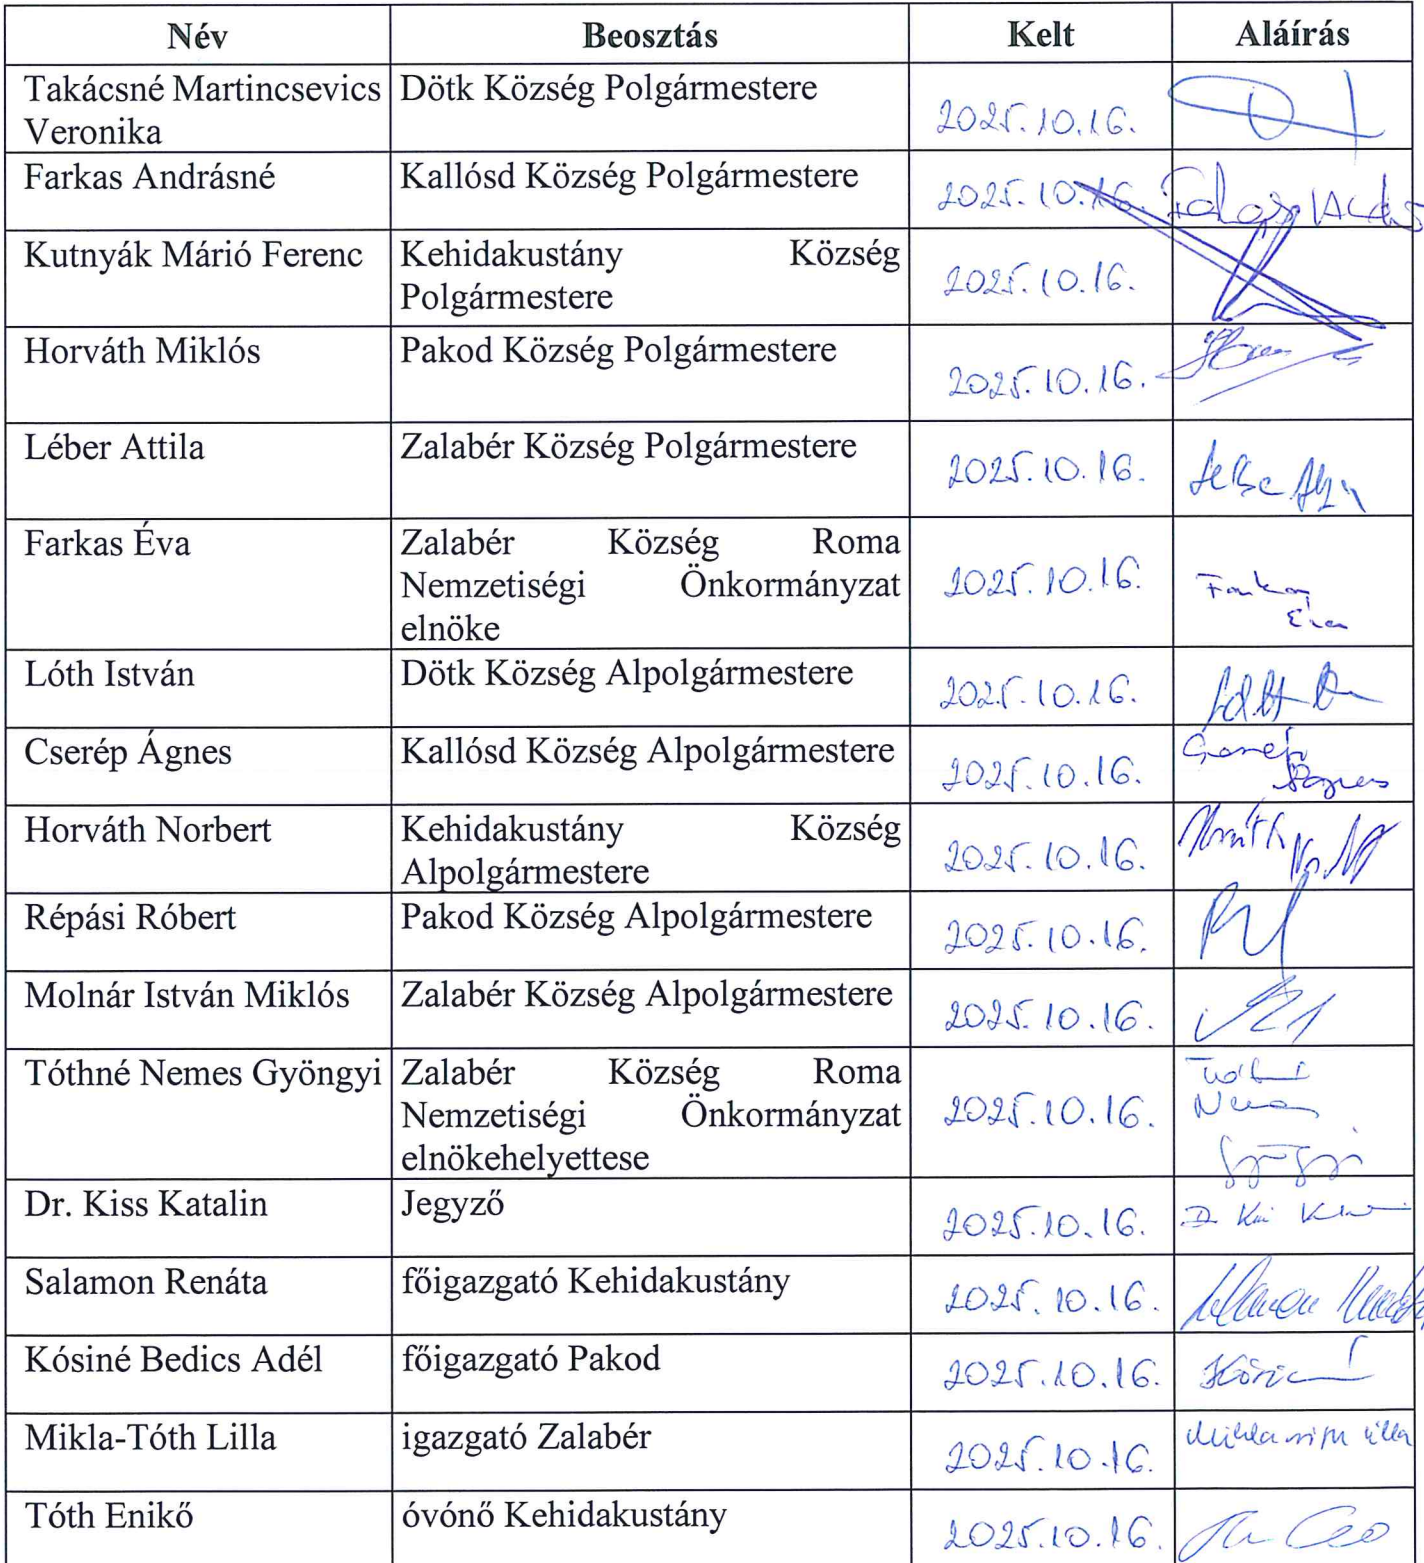 Név Beosztás Kelt Aláírás
Takácsné Martincsevics Dötk Község Polgármestere 2025.10.16.
Veronika
Farkas Andrásné Kallósd Község Polgármestere 2025.10.16.
Kutnyák Márió Ferenc Kehidakustány Község 2025.10.16.
Polgármestere
Horváth Miklós Pakod Község Polgármestere 2025.10.16.
Léber Attila Zalabér Község Polgármestere 2025.10.16.
Farkas Éva Zalabér Község Roma 2025.10.16. Farkas
Nemzetiségi Önkormányzat Éva
elnöke
Lóth István Dötk Község Alpolgármestere 2025.10.16.
Cserép Ágnes Kallósd Község Alpolgármestere 2025.10.16. Cserép
Ágnes
Horváth Norbert Kehidakustány Község 2025.10.16. Horváth
Alpolgármestere
Répási Róbert Pakod Község Alpolgármestere 2025.10.16.
Molnár István Miklós Zalabér Község Alpolgármestere 2025.10.16.
Tóthné Nemes Gyöngyi Zalabér Község Roma 2025.10.16. Tóthné
Nemzetiségi Önkormányzat Nemes
elnökehelyettese Gyöngyi
Dr. Kiss Katalin Jegyző 2025.10.16.
Salamon Renáta főigazgató Kehidakustány 2025.10.16.
Kósiné Bedics Adél főigazgató Pakod 2025.10.16.
Mikla-Tóth Lilla igazgató Zalabér 2025.10.16.
Tóth Enikő óvónő Kehidakustány 2025.10.16.